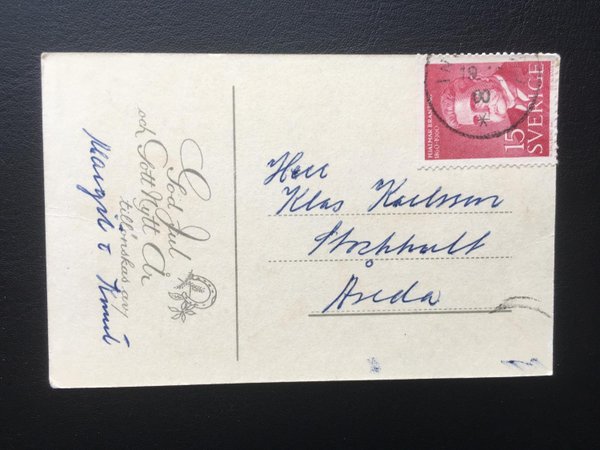 God Jul
och Gott Nytt År
tillönskas av,
Margit o Knut
Herr
Klas Karlsson
Stockhult
Åseda
HJALMAR BRANTING
1860-1960
15
SVERIGE